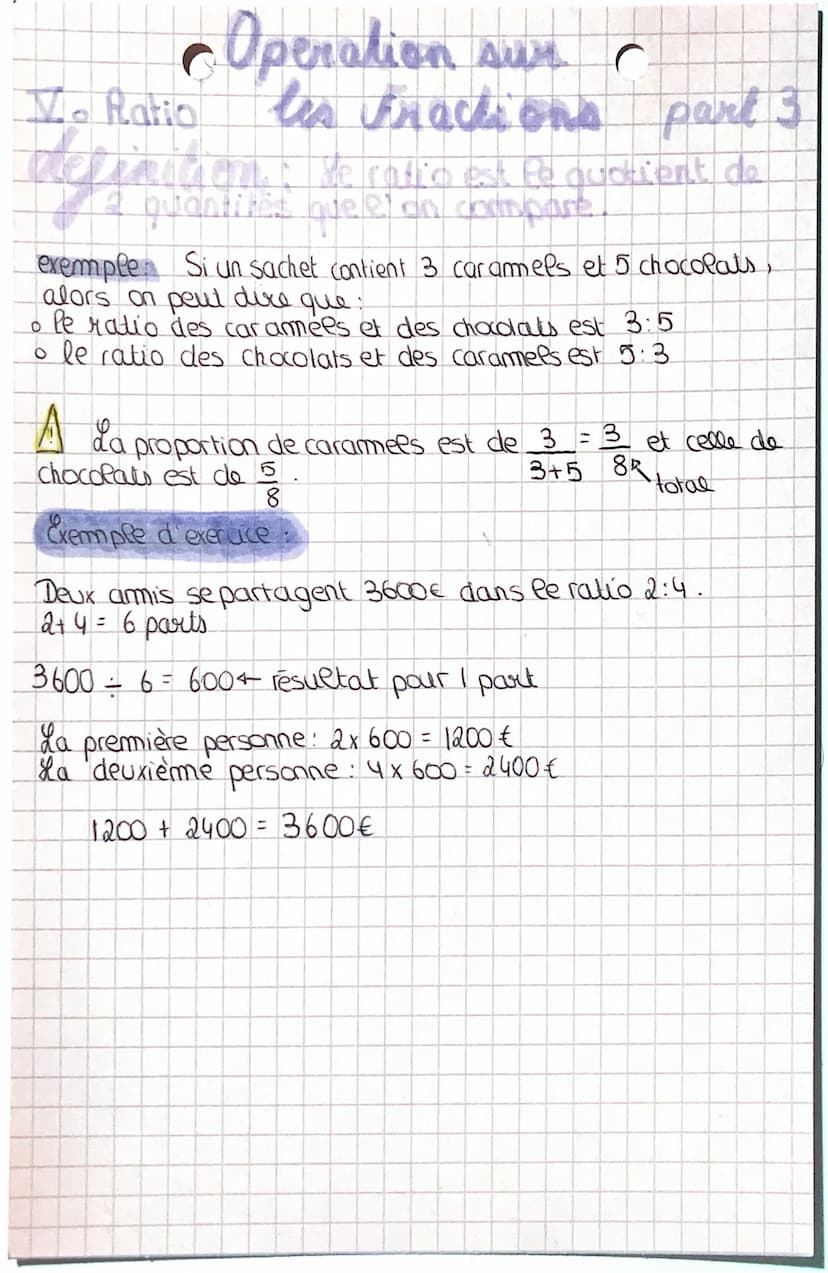 Operation sur
V. Ratio les fractions part 3
définition : Le ratio est le quotient de
2 quantités que l'on compare.
exemple : Si un sachet contient 3 caramels et 5 chocolats,
alors on peut dire que :
o le ratio des caramels et des chocolats est 3:5
o le ratio des chocolats et des caramels est 5:3
⚠ La proportion de caramels est de 3/(3+5) = 3/8 et celle de
chocolats est de 5/8. total
Exemple d'exercice :
Deux amis se partagent 3600€ dans le ratio 2:4.
2+4 = 6 parts
3600 ÷ 6 = 600 ← résultat pour 1 part
La première personne : 2x 600 = 1200 €
La deuxième personne : 4 x 600 = 2400 €
1200 + 2400 = 3600€